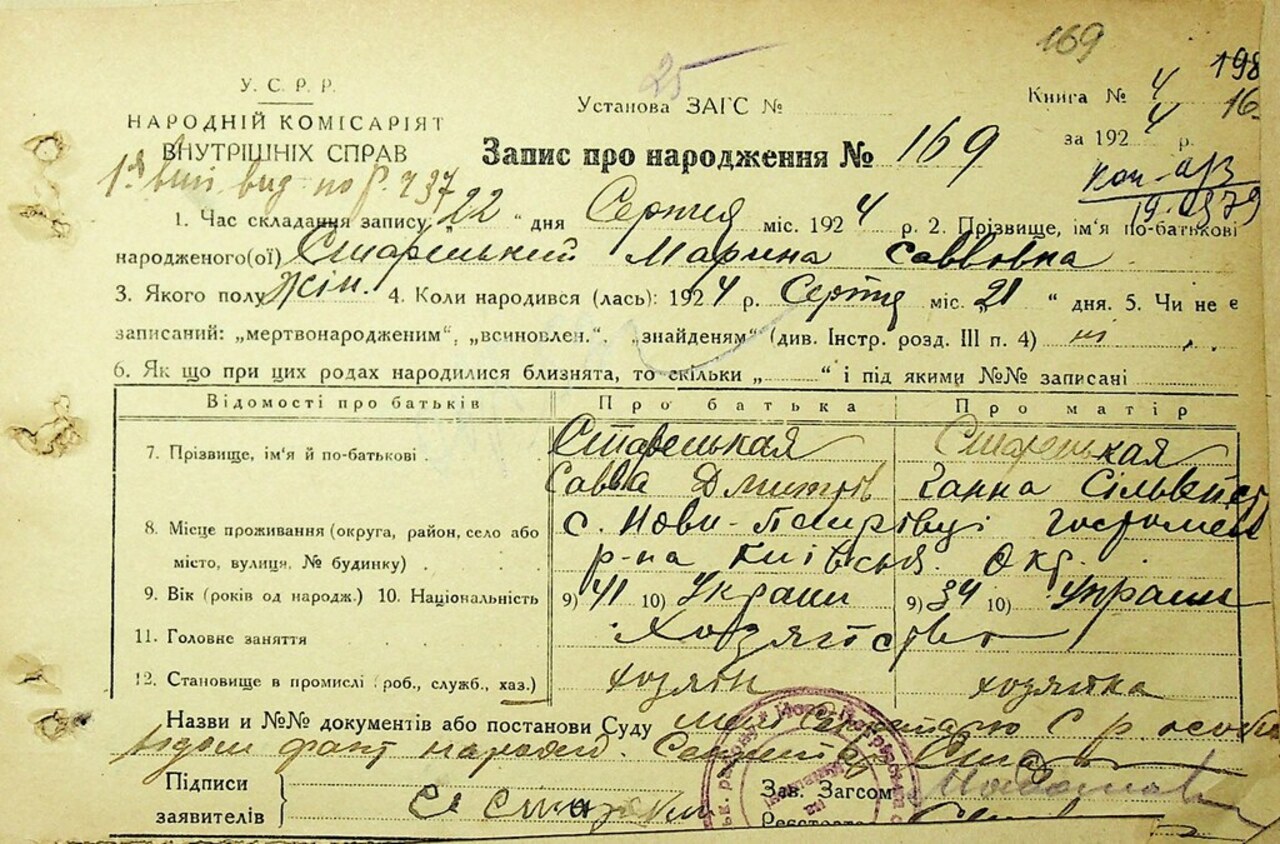 169
25
198
У. С. Р. Р.
Установа ЗАГС №
Книга № 4 16
НАРОДНІЙ КОМІСАРІЯТ
за 1924 р.
ВНУТРІШНІХ СПРАВ
Запис про народження № 169
1. Час складання запису „22“ дня Серпня міс. 1924 р. 2. Прізвище, ім'я по-батькові
народженого(ої) Старенький Марина Саввовна
3. Якого полу жін. 4. Коли народився (лась): 1924 р. Серпня міс. „21“ дня. 5. Чи не є
записаний: „мертвонародженим“, „всиновлен.“, „знайденям“ (див. Інстр. розд. III п. 4) ні
6. Як що при цих родах народилися близнята, то скільки „ “ і під якими №№ записані
Відомости про батьків Про батька Про матір
7. Прізвище, ім'я й по-батькові Старенькая Старенькая
Савва Дмитров Ганна Сільвестр
8. Місце проживання (округа, район, село або с. Нови-Петрівці Гостомел
місто, вулиця, № будинку) р-на Київськ. Окр.
9. Вік (років од народж.) 10. Національність 9) 41 10) Украин 9) 34 10) Украин
11. Головне заняття Хозяйство
12. Становище в промислі (роб., служб., хаз.) хозяїн хозяйка
Назви и №№ документів або постанови Суду
факт народж.
Підписи
заявителів
Зав. Загсом